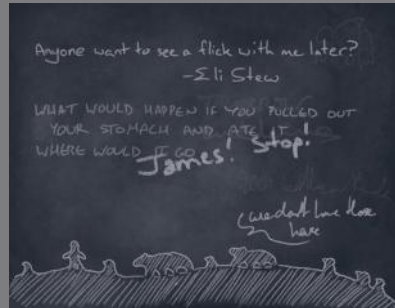 Anyone want to see a flick with me later?
-Eli Stew
WHAT WOULD HAPPEN IF YOU PULLED OUT
YOUR STOMACH AND ATE IT
WHERE WOULD IT GO
James! Stop!
we don't have those
here